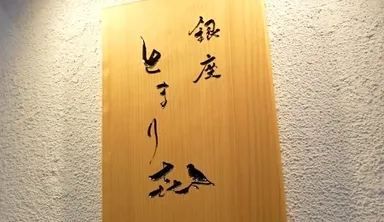 銀座
とまり木